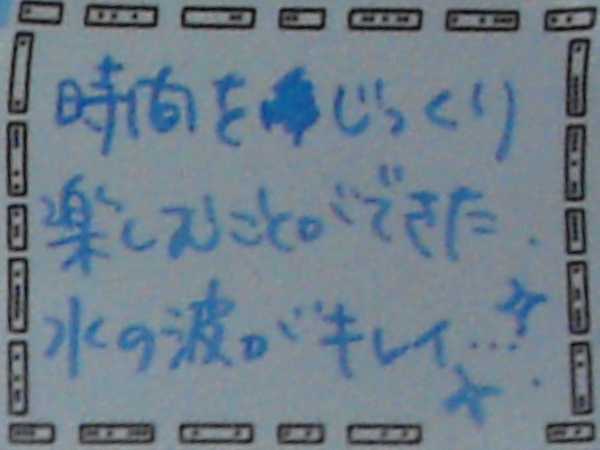 時間をじっくり
楽しむことができた.
水の波がキレイ...